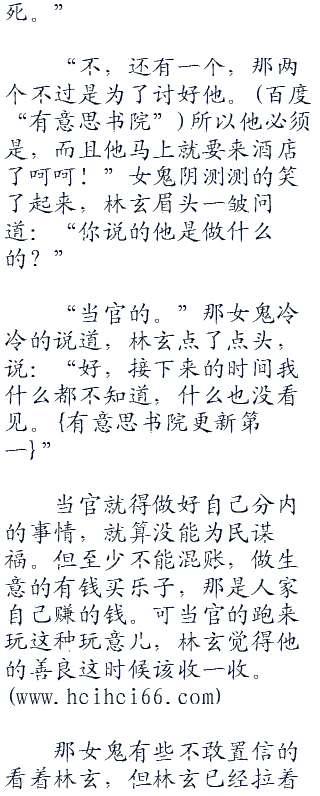 死。”
“不，还有一个，那两
个不过是为了讨好他。(百度
“有意思书院”)所以他必须
是，而且他马上就要来酒店
了呵呵！”女鬼阴测测的笑
了起来，林玄眉头一皱问
道：“你说的他是做什么
的？”
“当官的。”那女鬼冷
冷的说道，林玄点了点头，
说：“好，接下来的时间我
什么都不知道，什么也没看
见。{有意思书院更新第
一}”
当官就得做好自己分内
的事情，就算没能为民谋
福。但至少不能混账，做生
意的有钱买乐子，那是人家
自己赚的钱。可当官的跑来
玩这种玩意儿，林玄觉得他
的善良这时候该收一收。
(www.hcihci66.com)
那女鬼有些不敢置信的
看着林玄，但林玄已经拉着